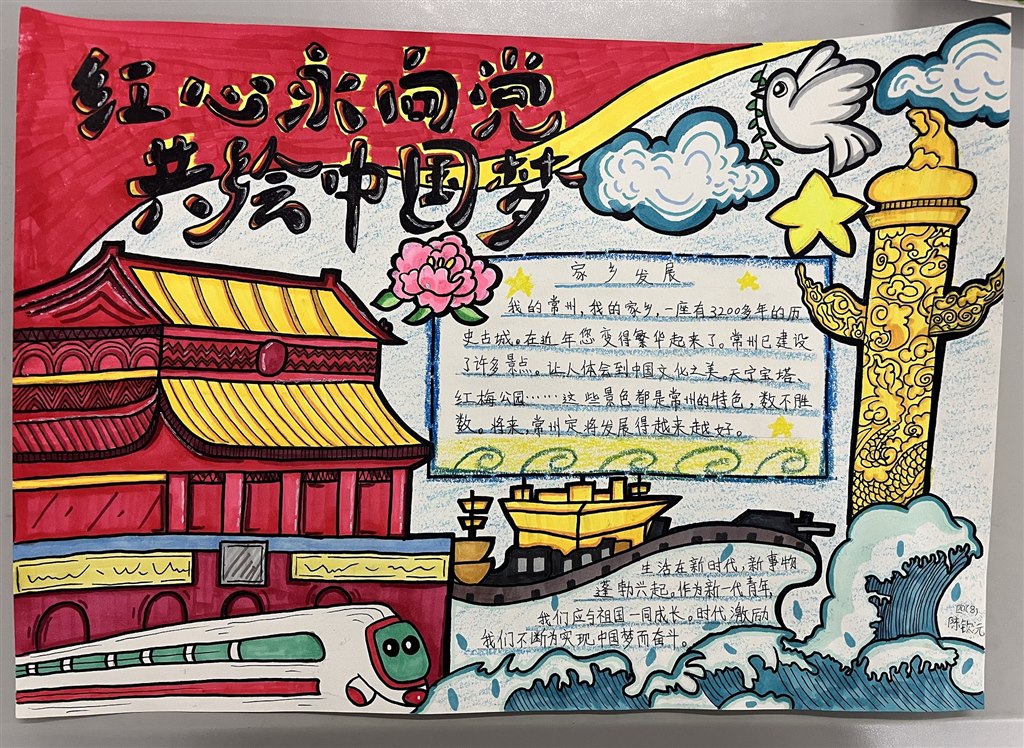 红心永向党
共绘中国梦
家乡发展
我的常州，我的家乡，一座有3200多年的历
史古城。在近年您变得繁华起来了。常州已建设
了许多景点。让人体会到中国文化之美。天宁宝塔、
红梅公园……这些景色都是常州的特色，数不胜
数。将来，常州定将发展得越来越好。
生活在新时代，新事物
蓬勃兴起。作为新一代青年，
我们应与祖国一同成长。时代激励
我们不断为实现中国梦而奋斗。